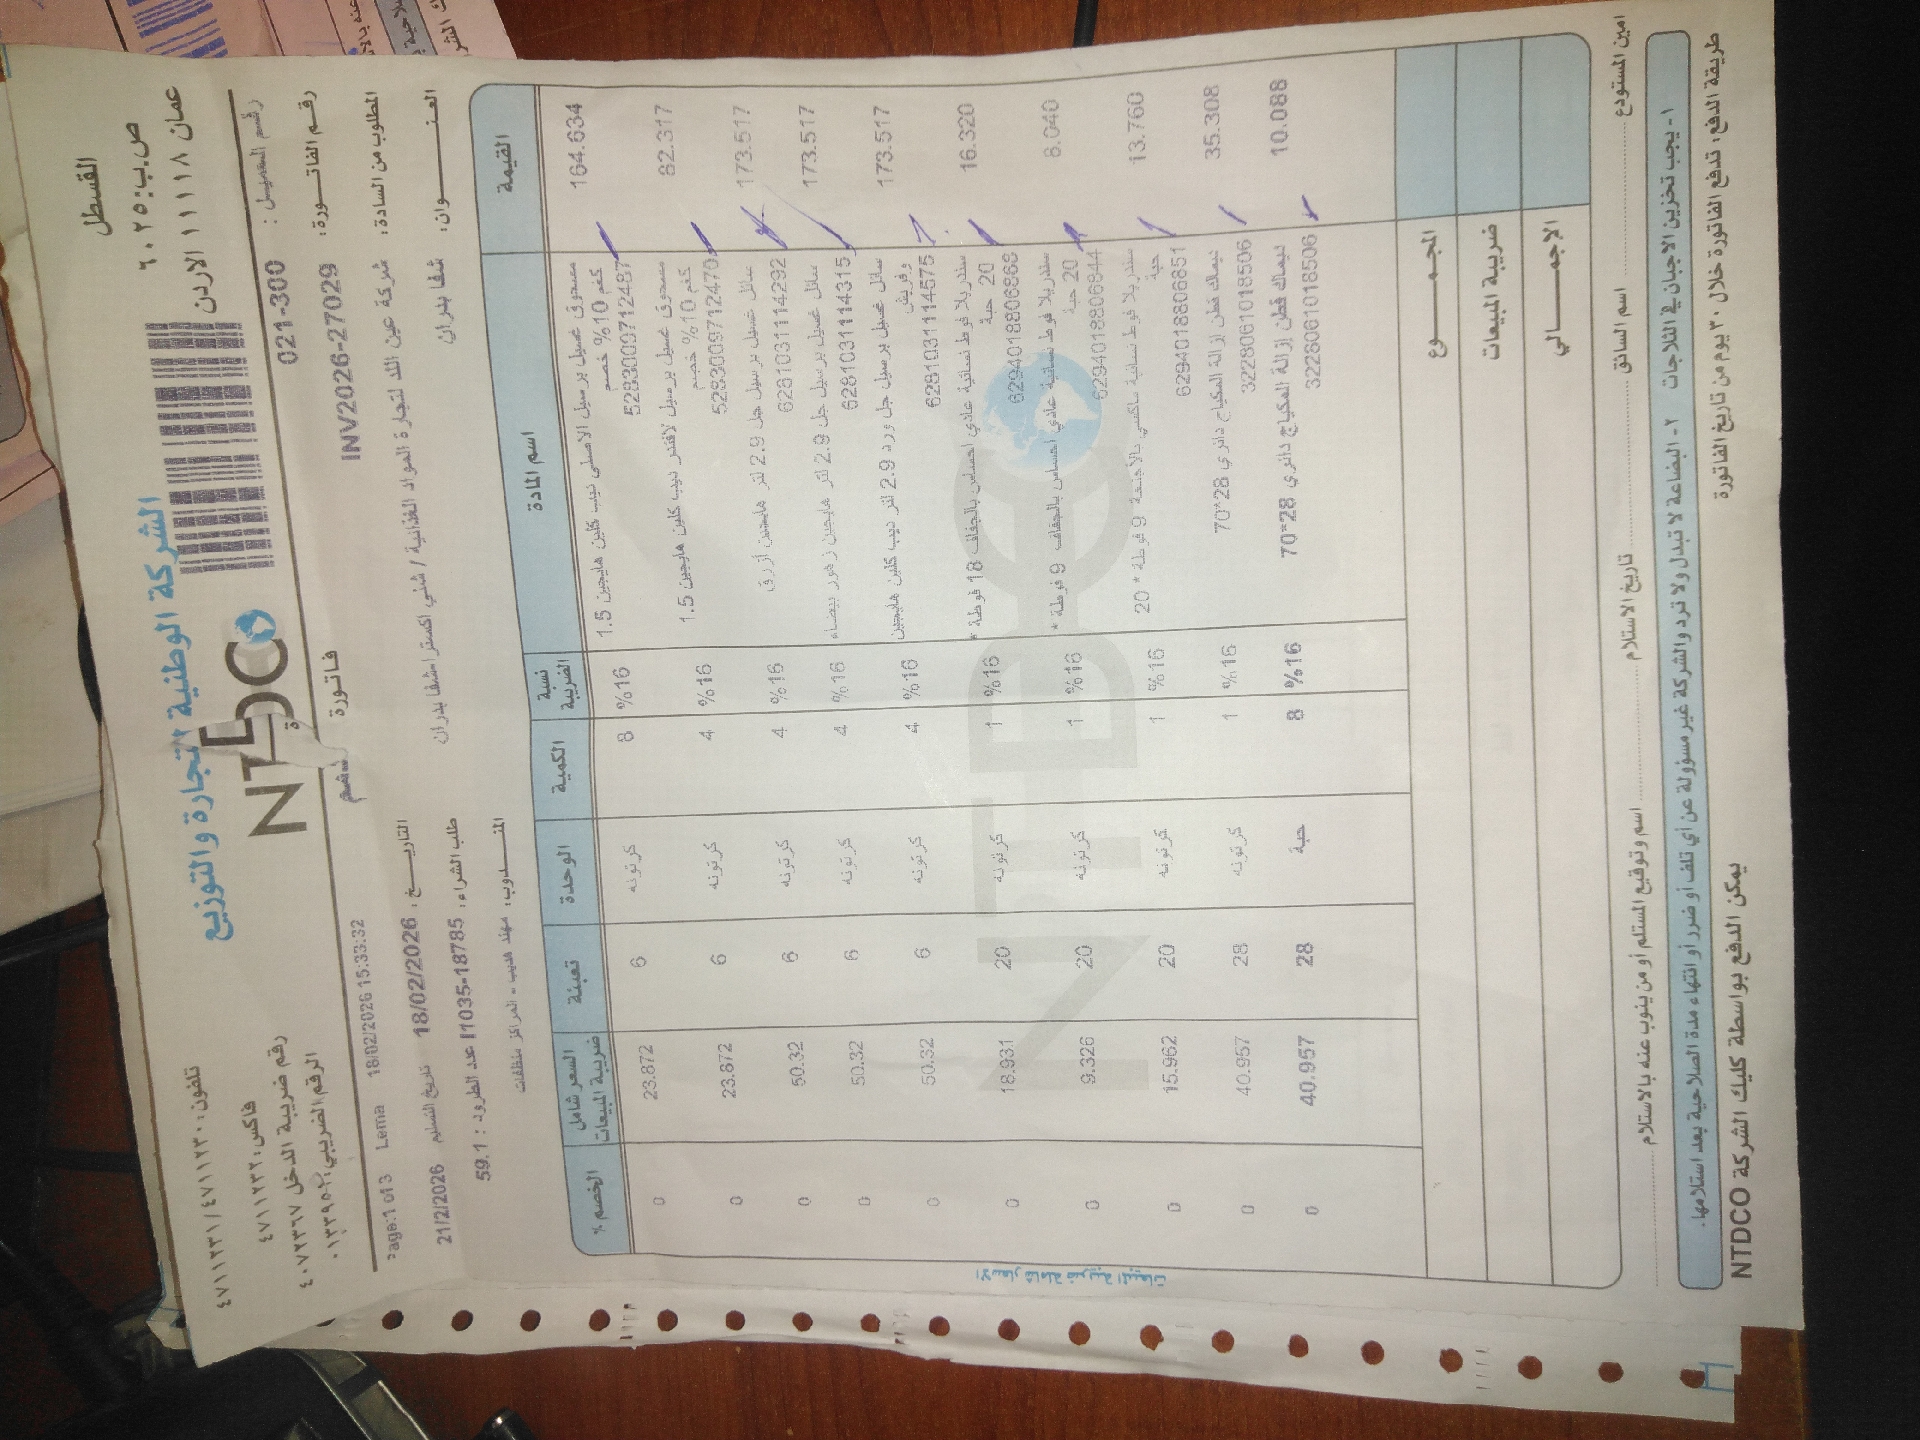 القسطل
ص.ب: ٦٠٢٥
عمان ١١١١٨ الاردن
الشركة الوطنية لتجارة والتوزيع
NTDCO
تلفون: ٤٧١١٢٣٠ / ٤٧١١٢٣١
فاكس: ٤٧١١٢٣٢
رقم ضريبة الدخل ٤٠٧٢٣٦٧
الرقم الضريبي:
رقم العميل : 021-300
فاتورة
18/02/2026 15:33:32 Lema
رقم الفاتورة: INV2026-27029
المطلوب من السادة: شركة عين اللد لتجارة المواد الغذائية / شني اكسترا شفا بدران
التاريخ : 18/02/2026 تاريخ التسليم 21/2/2026
العنوان: شفا بدران
طلب الشراء: I1035-18785 عدد الطرود : 59.1
المندوب: مهند هديب - المراكز منظفات
القيمة اسم المادة نسبة الضريبة الكمية الوحدة تعبئة السعر شامل ضريبة المبيعات الخصم %
164.634 مسحوق غسيل برسيل الاصلي ديب كلين هايجين 1.5 كغم 10% خصم 5283009712487 %16 8 كرتونه 6 23.872 0
82.317 مسحوق غسيل برسيل لافندر ديب كلين هايجين 1.5 كغم 10% خصم 5283009712470 %16 4 كرتونه 6 23.872 0
173.517 سائل غسيل برسيل جل 2.9 لتر هايجين أزرق 6281031114292 %16 4 كرتونه 6 50.32 0
173.517 سائل غسيل برسيل جل 2.9 لتر هايجين زهور بيضاء 6281031114315 %16 4 كرتونه 6 50.32 0
173.517 سائل غسيل برسيل جل ورد 2.9 لتر ديب كلين هايجين وفريش 6281031114575 %16 4 كرتونه 6 50.32 0
16.320 سندريلا فوط نسائية عادي احساس بالجفاف 18 فوطة * 20 حبة 6294018806868 %16 1 كرتونه 20 18.931 0
8.040 سندريلا فوط نسائية عادي احساس بالجفاف 9 فوطة * 20 حبة 6294018806844 %16 1 كرتونه 20 9.326 0
13.760 سندريلا فوط نسائية ماكسي بالاجنحة 9 فوطة * 20 حبة 6294018806851 %16 1 كرتونه 20 15.962 0
35.308 ديماك قطن إزالة المكياج دائري 28*70 3228061018506 %16 1 كرتونه 28 40.957 0
10.088 ديماك قطن إزالة المكياج دائري 28*70 3228061018506 %16 8 حبة 28 40.957 0
المجموع
ضريبة المبيعات
الاجمالي
الاسعار شاملة ضريبة المبيعات
امين المستودع اسم السائق تاريخ الاستلام اسم وتوقيع المستلم أو من ينوب عنه بالاستلام
١- يجب تخزين الاجبان في الثلاجات ٢- البضاعة لا تبدل ولا ترد والشركة غير مسؤولة عن أي تلف أو ضرر أو انتهاء مدة الصلاحية بعد استلامها.
طريقة الدفع: تدفع الفاتورة خلال ٣٠ يوم من تاريخ الفاتورة
يمكن الدفع بواسطة كليك الشركة NTDCO